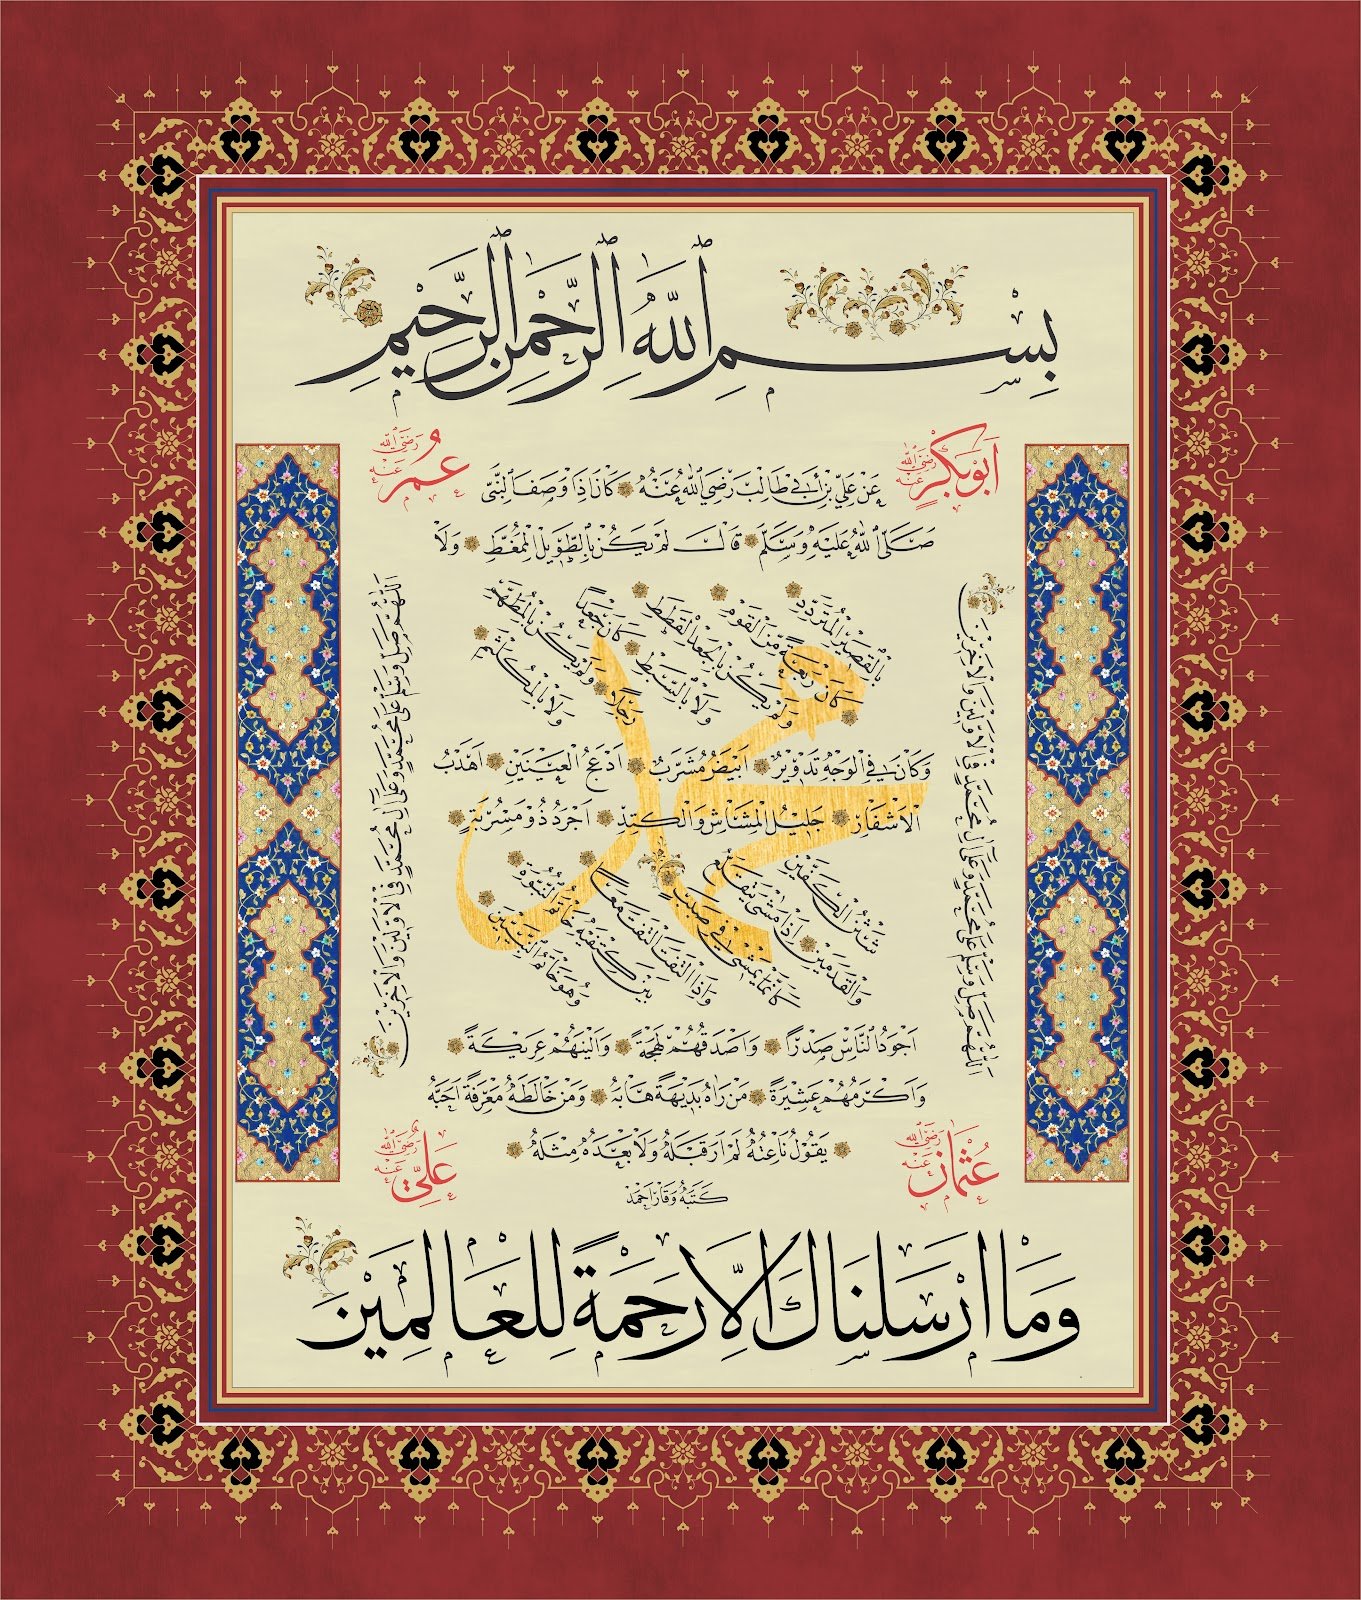 بِسْمِ ٱللَّهِ ٱلرَّحْمٰنِ ٱلرَّحِيْمِ
اَبُوبَكْرٍ رَضِيَ اللّٰهُ عَنْهُ
عُمَرُ رَضِيَ اللّٰهُ عَنْهُ
عَنْ عَلِيِّ بْنِ اَبِيْ طَالِبٍ رَضِيَ اللّٰهُ عَنْهُ كَانَ اِذَا وَصَفَ النَّبِيَّ
صَلَّى اللّٰهُ عَلَيْهِ وَسَلَّمَ قَالَ لَمْ يَكُنْ بِالطَّوِيْلِ الْمُمَّغِطِ وَلَا
بِالْقَصِيْرِ الْمُتَرَدِّدِ
كَانَ رَبْعَةً مِنَ الْقَوْمِ
وَلَمْ يَكُنْ بِالْجَعْدِ الْقَطَطِ
وَلَا بِالسَّبِطِ كَانَ جَعْدًا
رَجِلًا وَلَمْ يَكُنْ بِالْمُطَهَّمِ
وَلَا بِالْمُكَلْثَمِ
وَكَانَ فِي الْوَجْهِ تَدْوِيْرٌ اَبْيَضُ مُشْرَبٌ اَدْعَجُ الْعَيْنَيْنِ اَهْدَبُ
الْاَشْفَارِ جَلِيْلُ الْمُشَاشِ وَالْكَتِدِ اَجْرَدُ ذُوْ مَسْرُبَةٍ
مُحَمَّد
شَثْنُ الْكَفَّيْنِ
وَالْقَدَمَيْنِ اِذَا مَشٰى تَقَلَّعَ
كَاَنَّمَا يَمْشِيْ فِيْ صَبَبٍ
وَاِذَا الْتَفَتَ الْتَفَتَ مَعًا
بَيْنَ كَتِفَيْهِ خَاتَمُ النُّبُوَّةِ
وَهُوَ خَاتَمُ النَّبِيِّيْنَ
اَجْوَدُ النَّاسِ صَدْرًا وَاَصْدَقُهُمْ لَهْجَةً وَاَلْيَنُهُمْ عَرِيْكَةً
وَاَكْرَمُهُمْ عَشِيْرَةً مَنْ رَاٰهُ بَدِيْهَةً هَابَهُ وَمَنْ خَالَطَهُ مَعْرِفَةً اَحَبَّهُ
يَقُوْلُ نَاعِتُهُ لَمْ اَرَ قَبْلَهُ وَلَا بَعْدَهُ مِثْلَهُ
اَللّٰهُمَّ صَلِّ وَسَلِّمْ عَلٰى مُحَمَّدٍ وَعَلٰى اٰلِ مُحَمَّدٍ فِي الْاَوَّلِيْنَ وَالْاٰخِرِيْنَ
اَللّٰهُمَّ صَلِّ وَسَلِّمْ عَلٰى مُحَمَّدٍ وَعَلٰى اٰلِ مُحَمَّدٍ فِي الْاَوَّلِيْنَ وَالْاٰخِرِيْنَ
عُثْمَانُ رَضِيَ اللّٰهُ عَنْهُ
عَلِيٌّ رَضِيَ اللّٰهُ عَنْهُ
كَتَبَهُ وَقَارْ اَحْمَدْ
وَمَا اَرْسَلْنَاكَ اِلَّا رَحْمَةً لِلْعَالَمِيْنَ